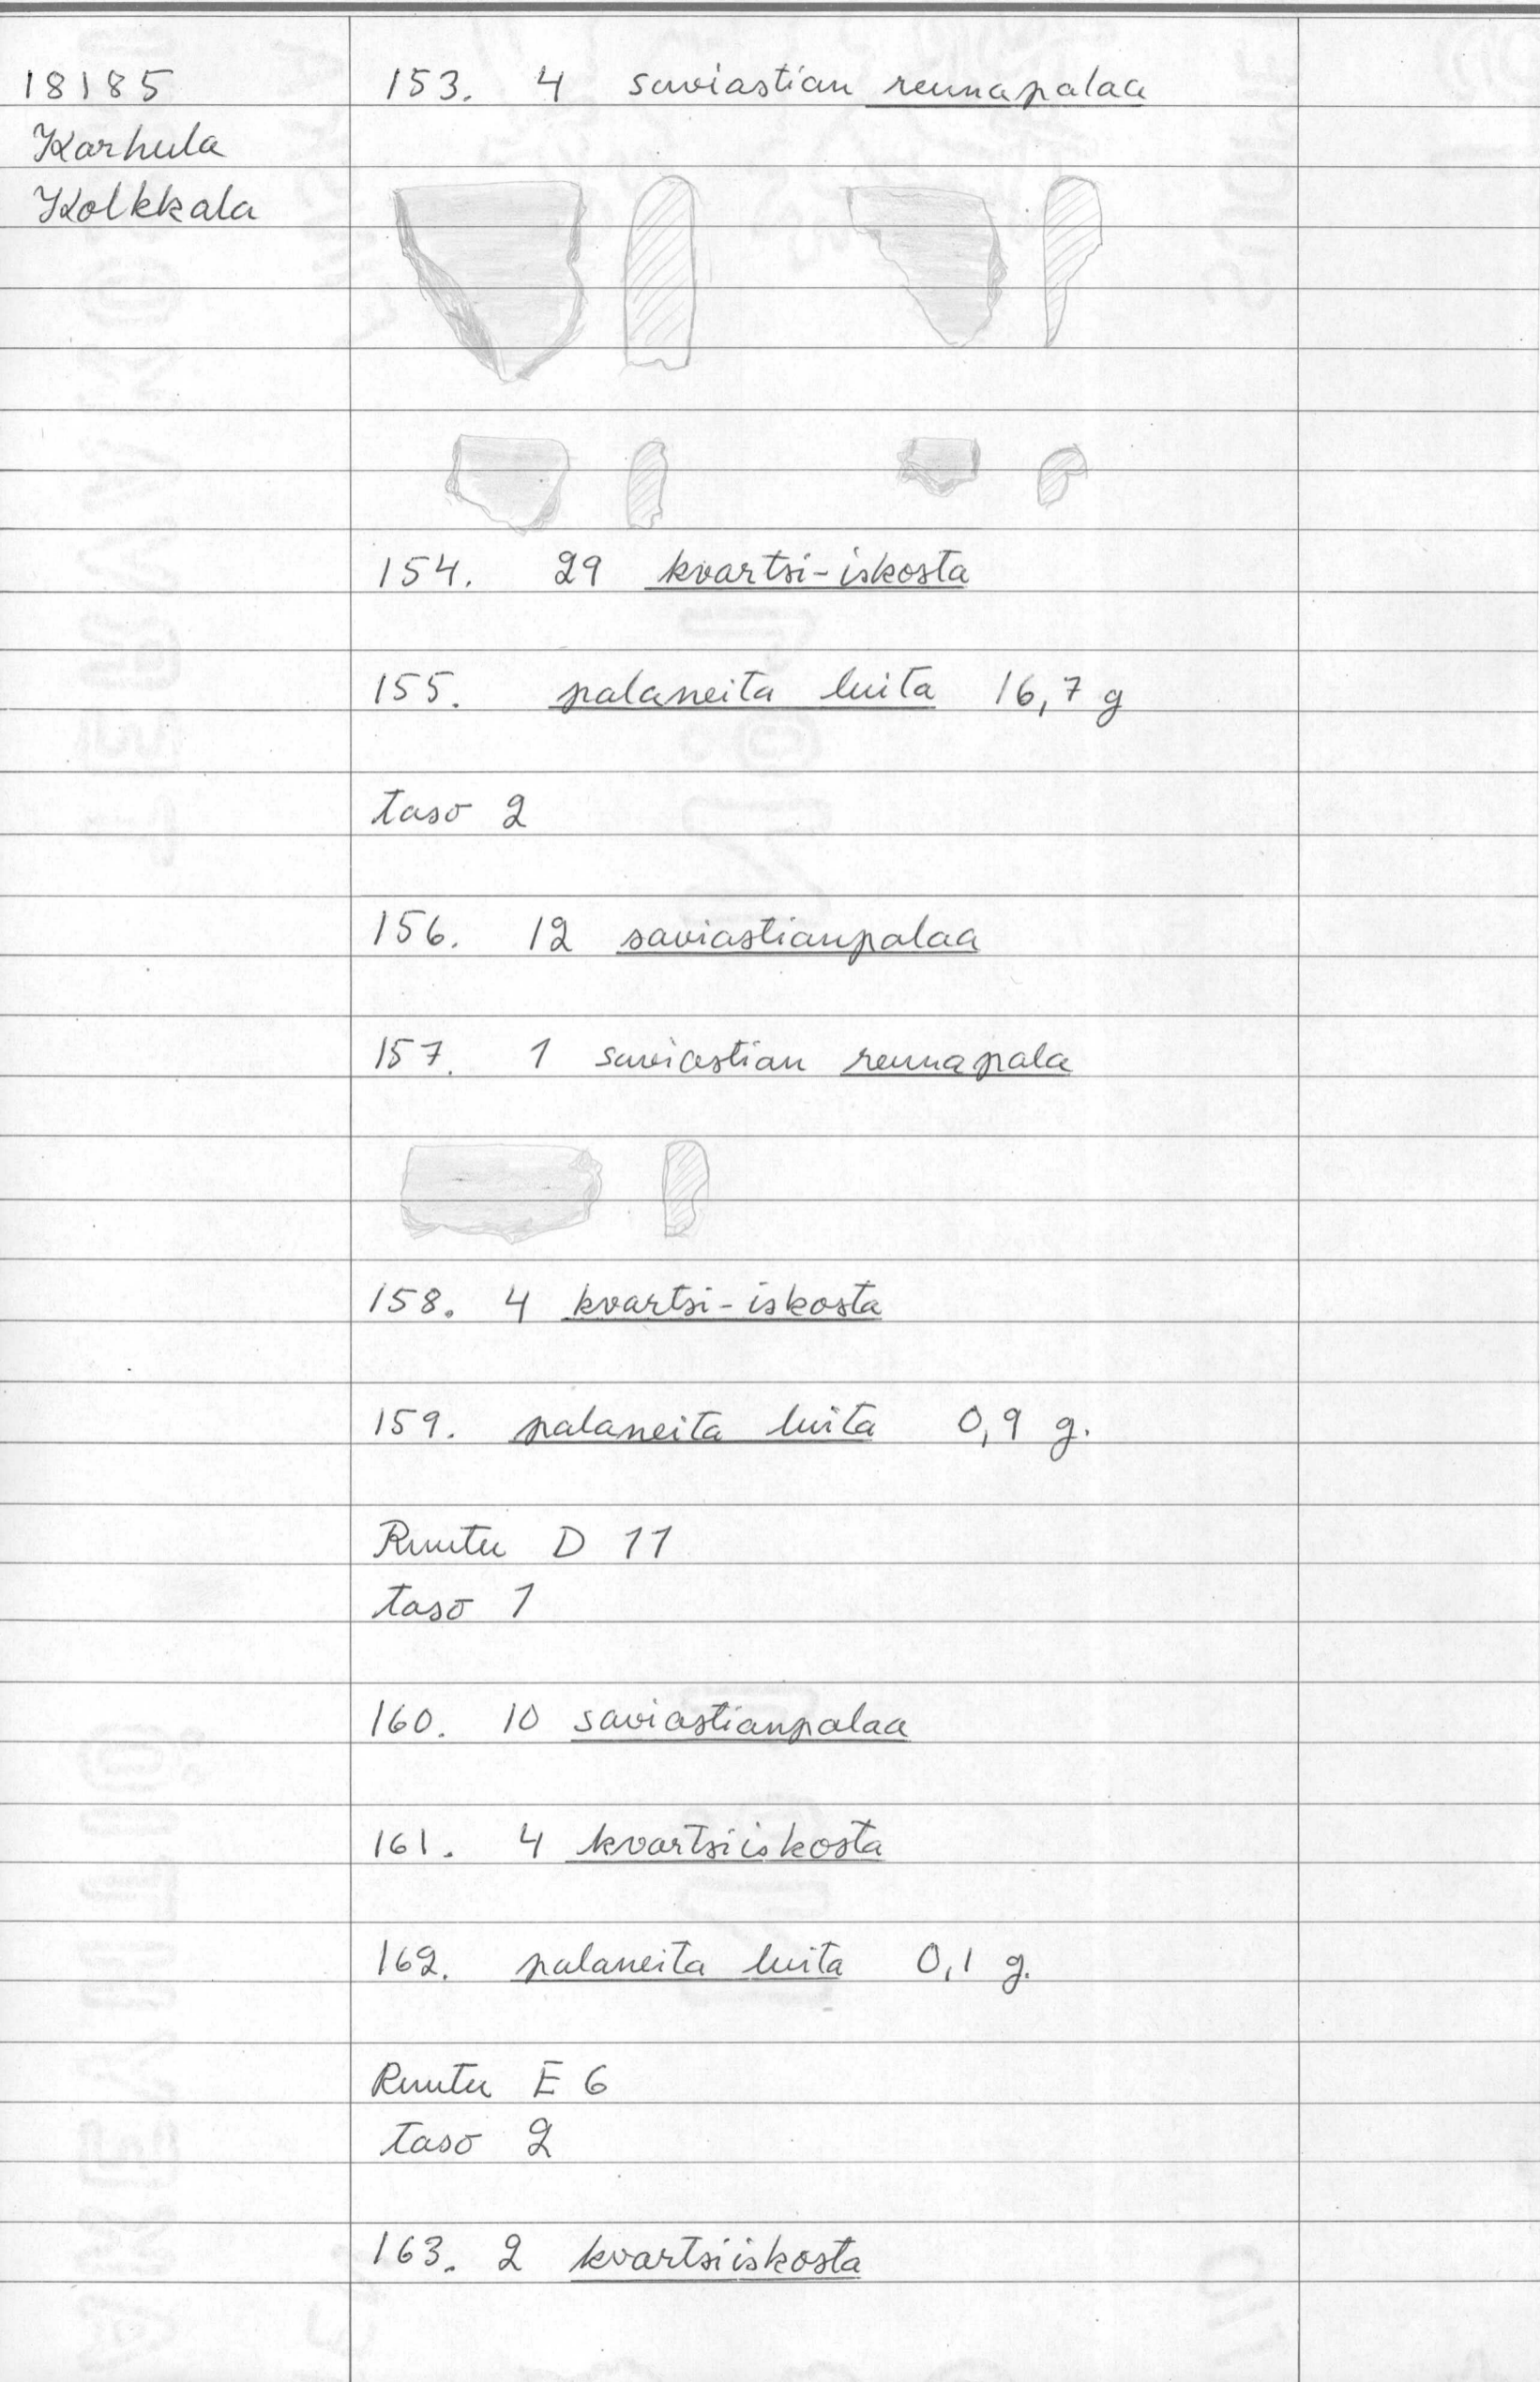 18185
Karhula
Kolkkala
153. 4 saviastian reunapalaa
154. 29 kvartsi-iskosta
155. palaneita luita 16,7 g
taso 2
156. 12 saviastianpalaa
157. 1 saviastian reunapala
158. 4 kvartsi-iskosta
159. palaneita luita 0,9 g.
Ruutu D 11
taso 1
160. 10 saviastianpalaa
161. 4 kvartsiiskosta
162. palaneita luita 0,1 g.
Ruutu E 6
taso 2
163. 2 kvartsiiskosta